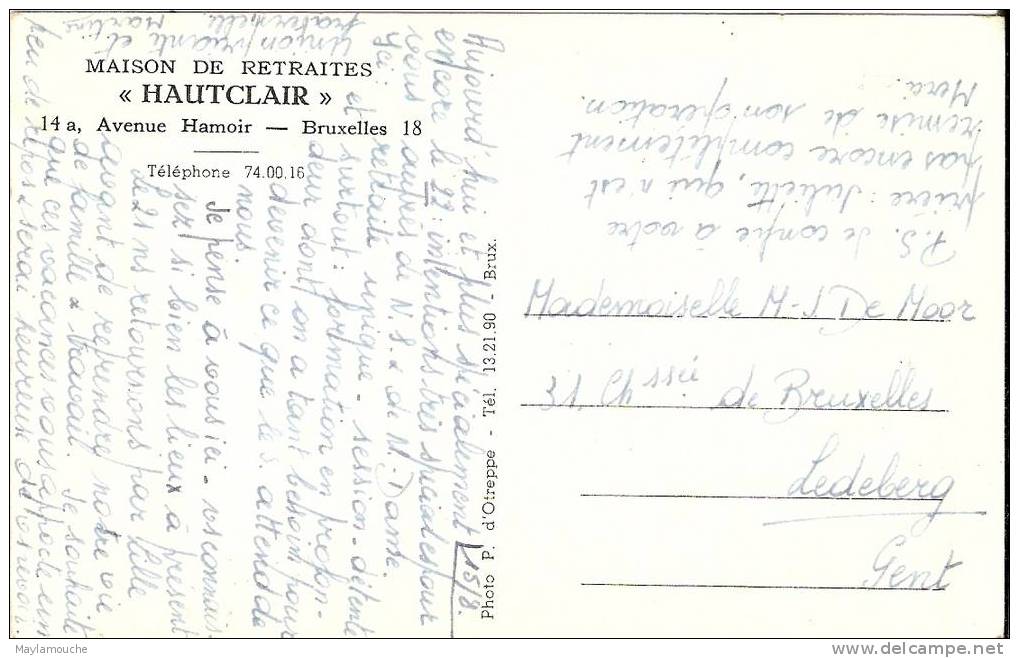 MAISON DE RETRAITES
« HAUTCLAIR »
14 a, Avenue Hamoir — Bruxelles 18
Téléphone 74.00.16
15/8.
Aujourd'hui et plus spécialement
encore le 22 : intentions très spéciales pour
vous auprès de N.S. & de N. Dame.
Ici : retraite unique - session - détente
et surtout : formation en profon-
deur dont on a tant besoin pour
devenir ce que le S. attend de
nous.
Je pense à vous ici - vs connais-
sez si bien les lieux à présent
Le 21 ns retournons par Lille
avant de reprendre notre vie
de famille & travail. Je souhaite
que ces vacances vous apportent un
peu de repos & serai heureuse de vs revoir.
Union priante et
fraternelle.
Martine
P.S. Je confie à votre
prière : Juliette, qui n'est
pas encore complètement
remise de son opération.
Merci.
Photo P. d'Otreppe - Tél. 13.21.90 - Brux.
Mademoiselle M-J. De Moor
31, Chssée de Bruxelles
Ledeberg
Gent
Maylamouche
delcampe.net